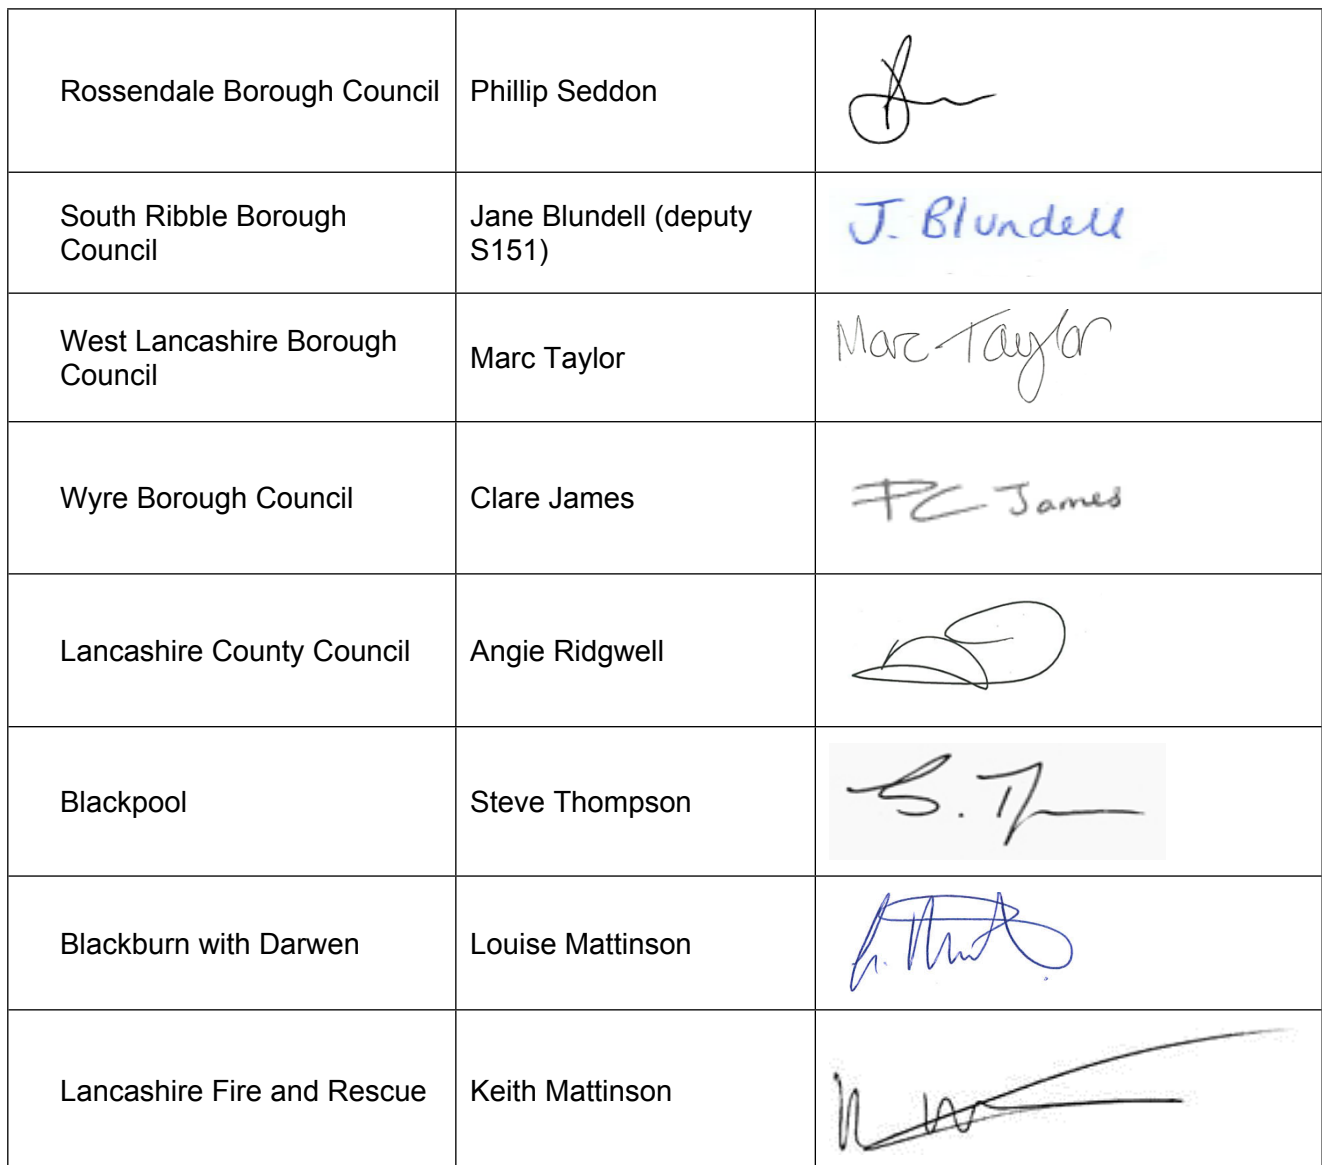 Rossendale Borough Council
Phillip Seddon
South Ribble Borough
Council
Jane Blundell (deputy
S151)
J. Blundell
West Lancashire Borough
Council
Marc Taylor
Marc Taylor
Wyre Borough Council
Clare James
PC James
Lancashire County Council
Angie Ridgwell
Blackpool
Steve Thompson
Blackburn with Darwen
Louise Mattinson
Lancashire Fire and Rescue
Keith Mattinson